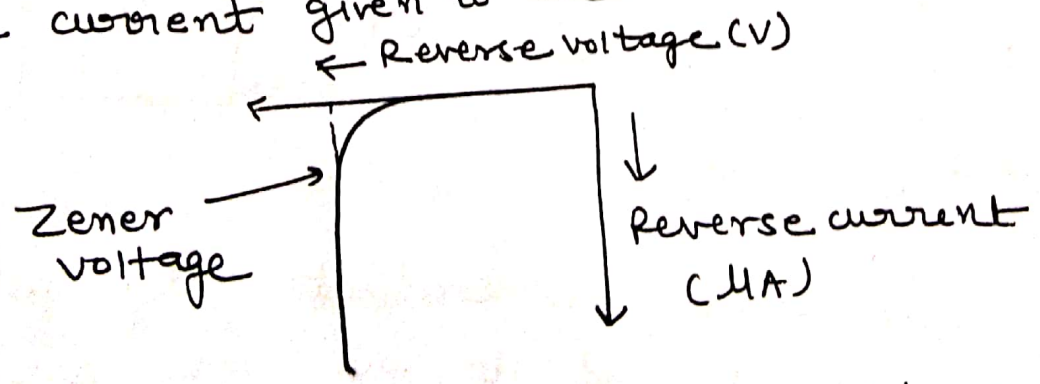 current given
← Reverse voltage (V)
Zener
voltage
Reverse current
(μA)